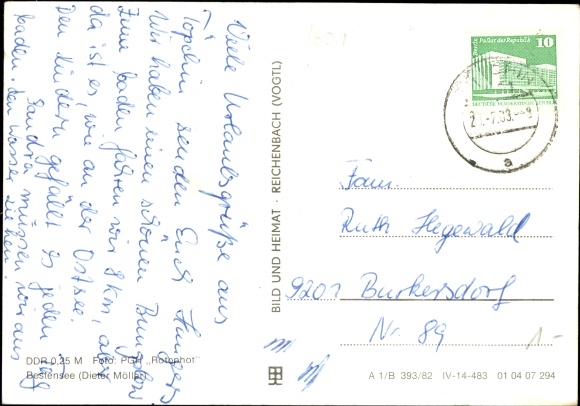 Viele Urlaubsgrüße aus
Töpchin senden Euch
Wir haben einen schönen Bungalow
Zum baden fahren wir 8 km, aber
da ist es, wie an der Ostsee.
Den Kindern gefällt es jeden Tag
baden. Sandra müssen wir aus
dem Wasser ziehen.
BILD UND HEIMAT · REICHENBACH (VOGTL)
Berlin Palast der Republik
10
DEUTSCHE DEMOKRATISCHE REPUBLIK
a
Fam.
Ruth Hegewald
9201 Burkersdorf
Nr. 89
1.-
DDR 0,25 M Foto: PGH „Rotophot"
Bestensee (Dieter Möller)
A 1/B 393/82 IV-14-483 01 04 07 294